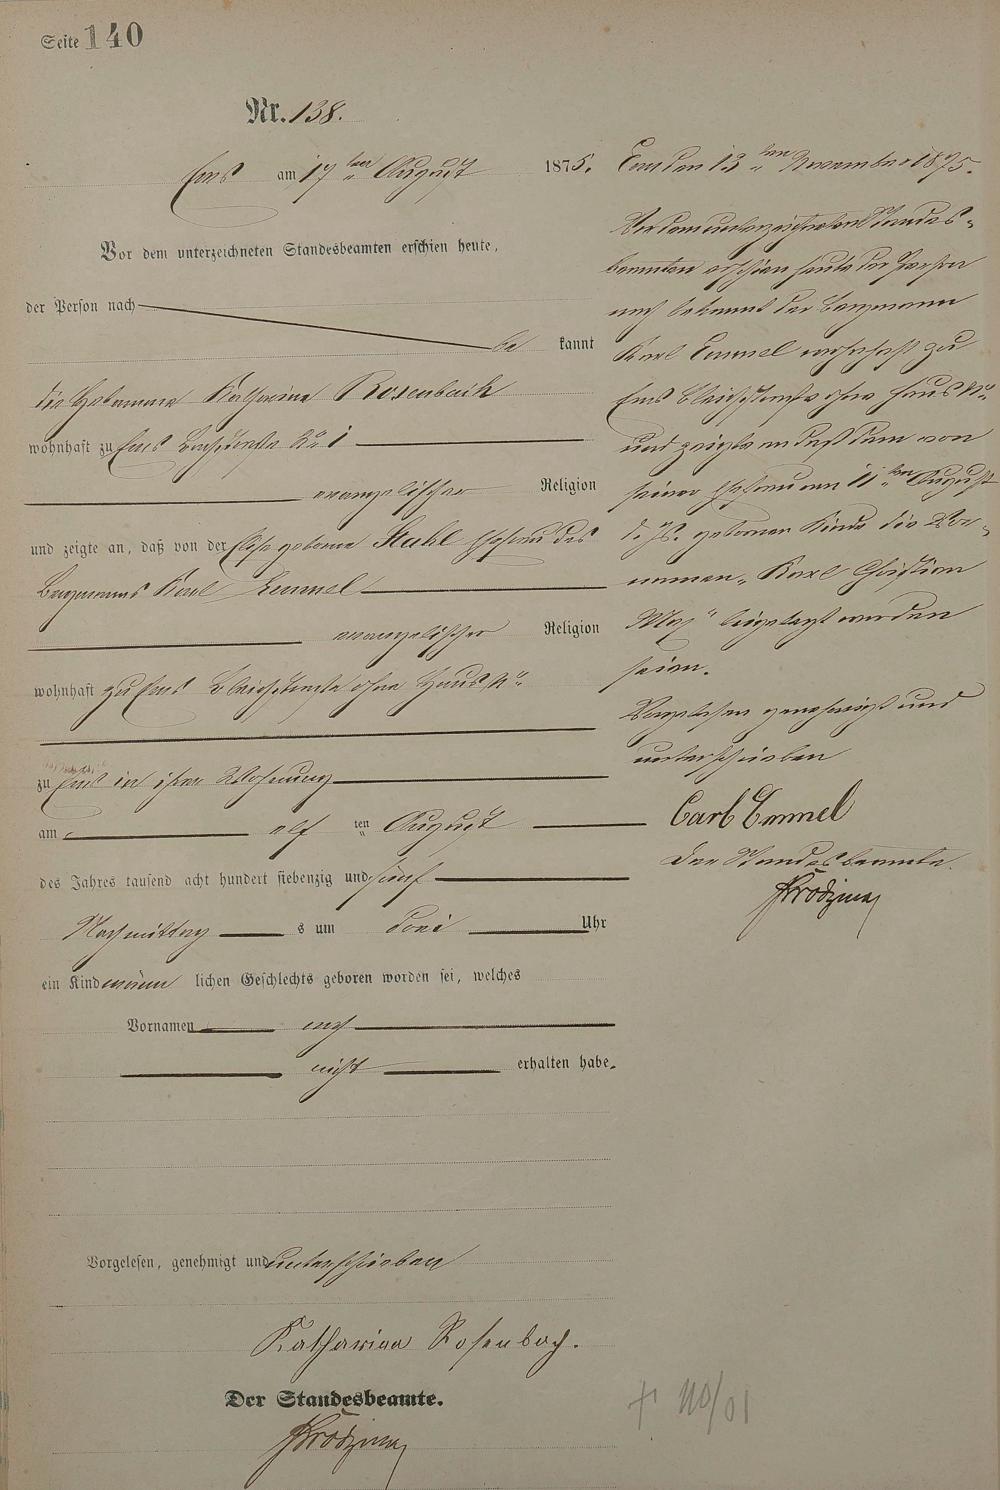 Seite 140
Nr. 138.
Ems am 17ten August 1875.
Vor dem unterzeichneten Standesbeamten erschien heute,
der Person nach
be kannt
die Hebamme Katharina Rosenbach
wohnhaft zu Ems No 1
evangelischer Religion
und zeigte an, daß von der Elise geborne Stahl Ehefrau des
Bergmanns Karl Emmel
evangelischer Religion
wohnhaft zu Ems Bleichstraße ohne Haus No
zu Ems in ihrer Wohnung
am elf ten August
des Jahres tausend acht hundert siebenzig und fünf
Nachmittag s um drei Uhr
ein Kind männ lichen Geschlechts geboren worden sei, welches
Vornamen noch
nicht erhalten habe.
Vorgelesen, genehmigt und unterschrieben
Katharina Rosenbach.
Der Standesbeamte.
Ems den 13ten November 1875.
Vor dem unterzeichneten Standes-
beamten erschien heute der Person
nach bekannt der Bergmann
Karl Emmel wohnhaft zu
Ems Bleichstraße ohne Haus No
und zeigte an daß dem von
seiner Ehefrau am 11ten August
d. Js. gebornen Kinde die Vor-
namen „Karl Christian
Max" beigelegt worden
seien.
Vorgelesen genehmigt und
unterschrieben
Carl Emmel
Der Standesbeamte.
+ 110/01